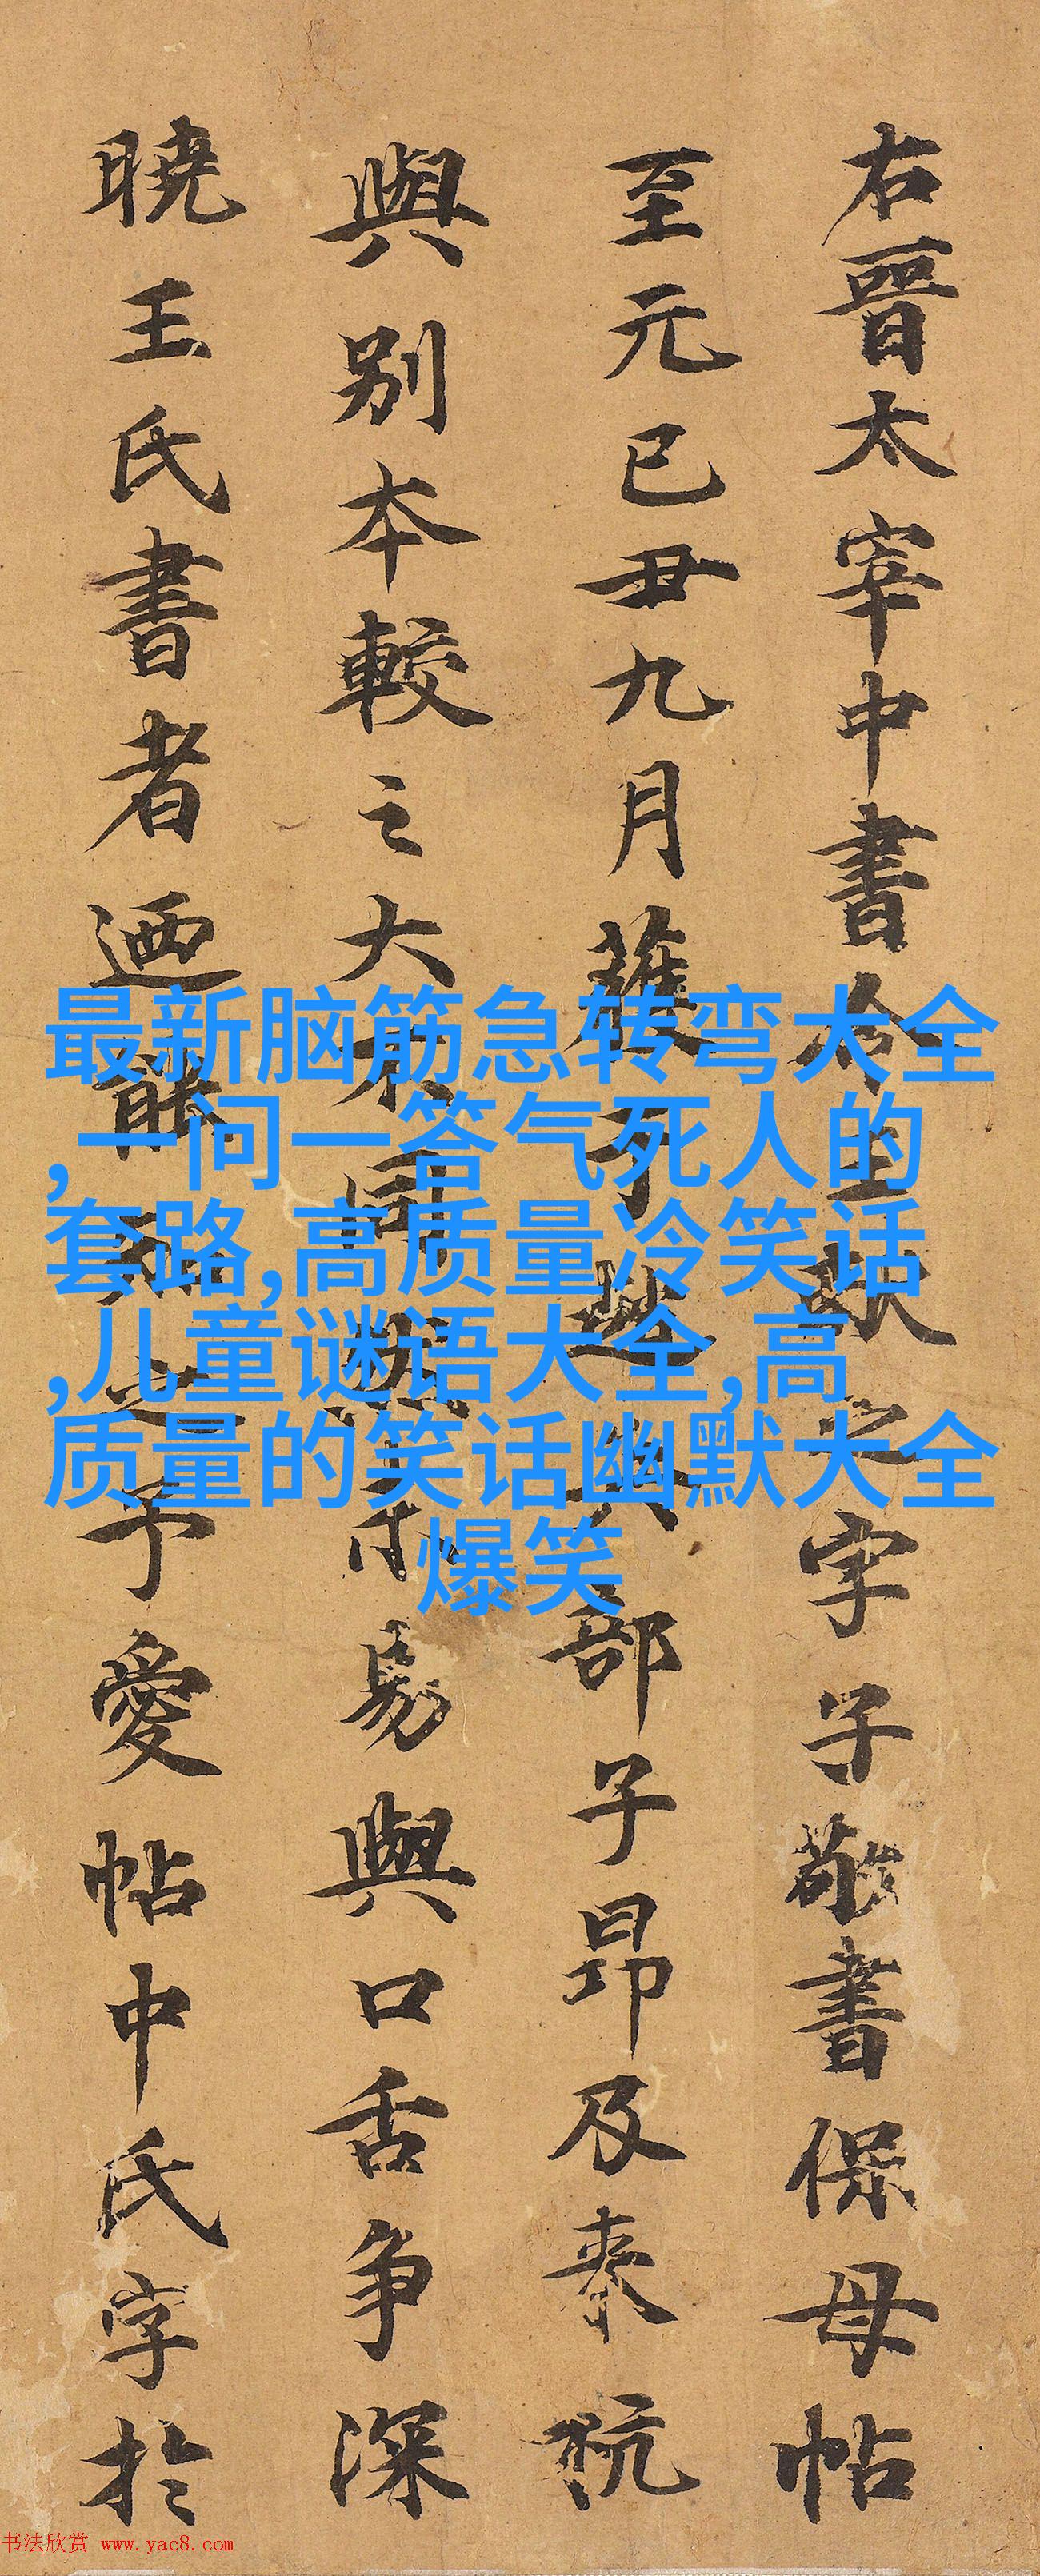 右晉太宰中書令王獻之字子敬書保母帖
至元己丑九月獲于趙兵部子昂及來杭
與别本較之大不同與未易與口舌争深
曉王氏書者迺能知之予愛帖中氏字於
最新脑筋急转弯大全
,一问一答气死人的
套路,高质量冷笑话
,儿童谜语大全,高
质量的笑话幽默大全
爆笑
书法欣赏 www.yac8.com